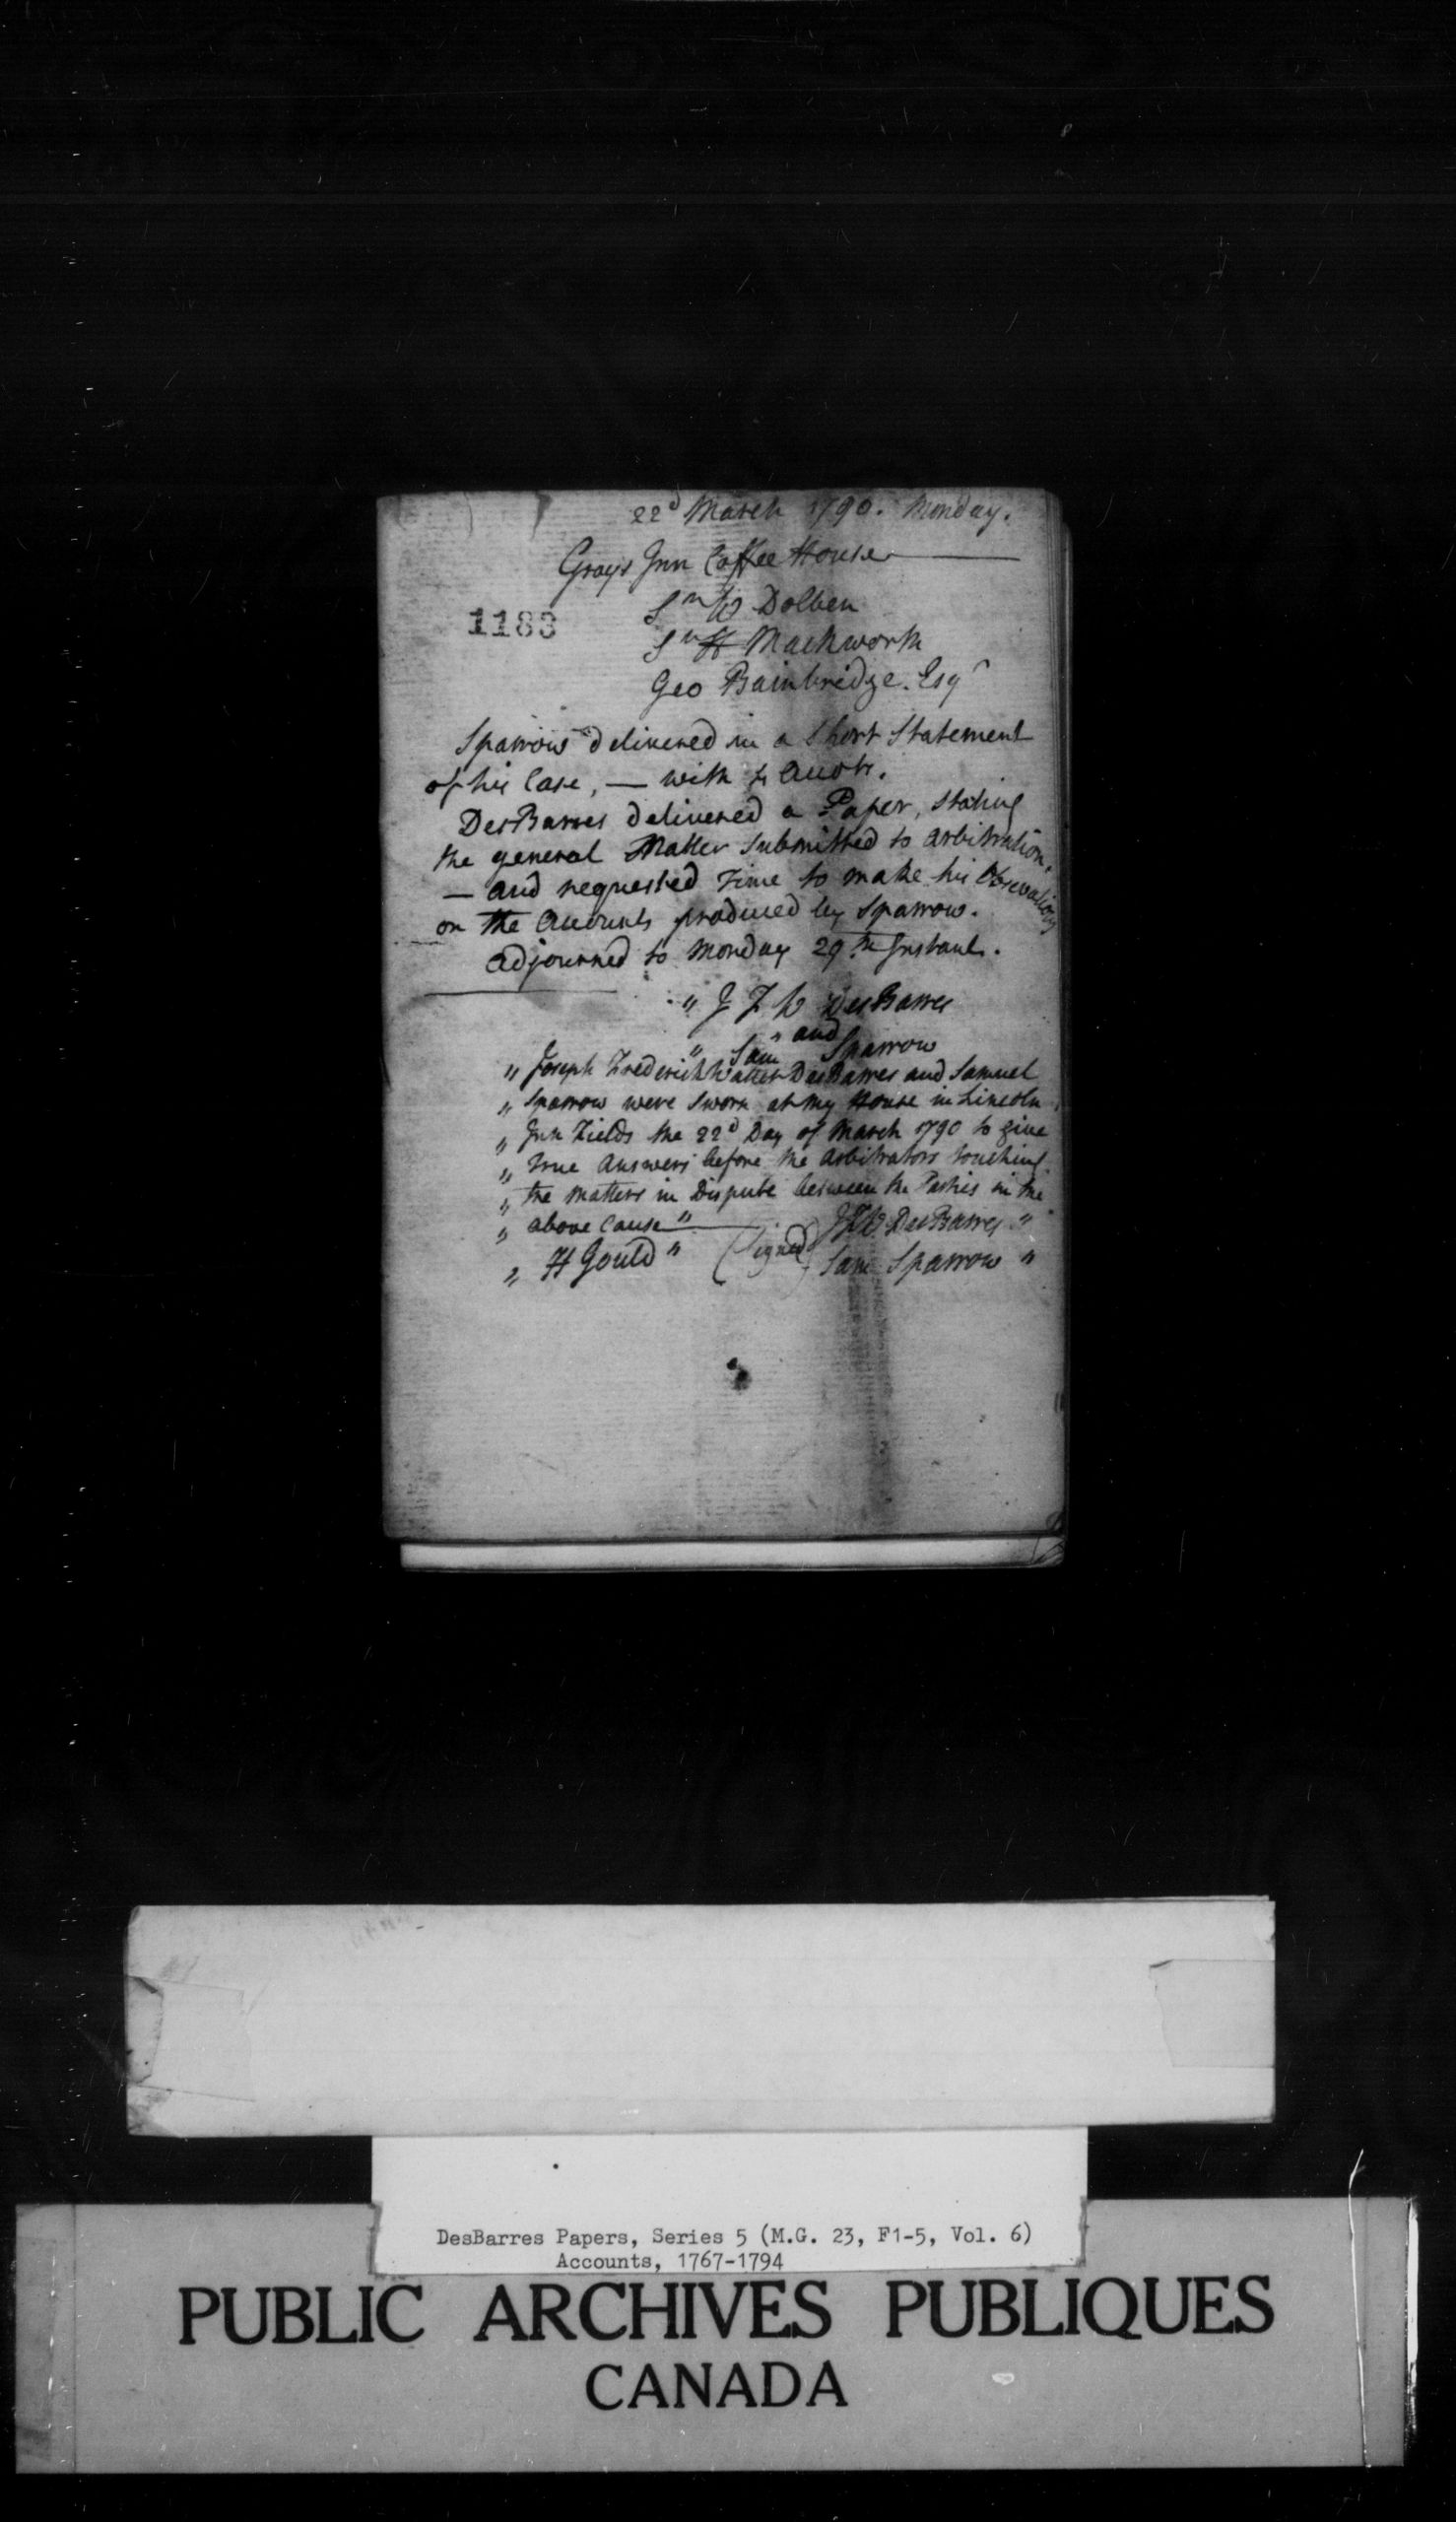 22d March 1790. Monday.
Grays Inn Coffee House
1183
Sr W Dolben
Sr H Mackworth
Geo Bainbridge. Esqr
Sparrow delivered in a Short Statement
of his Case, — with Accots.
DesBarres delivered a Paper, Stating
the general Matter Submitted to arbitration.
— and requested Time to make his Observations
on the Accounts produced by Sparrow.
adjourned to Monday 29th Instant.
" J F W DesBarres
" and
" Sam Sparrow
" Joseph Frederick Walter DesBarres and Samuel
" Sparrow were Sworn at my House in Lincoln
" Inn Fields the 22d Day of March 1790 to give
" True Answers before the Arbitrators touching
" the Matters in Dispute between the Parties in the
" above Cause "
J F W DesBarres "
" H Gould " (Signed) Sam Sparrow "
DesBarres Papers, Series 5 (M.G. 23, F1-5, Vol. 6)
Accounts, 1767-1794
PUBLIC ARCHIVES PUBLIQUES
CANADA